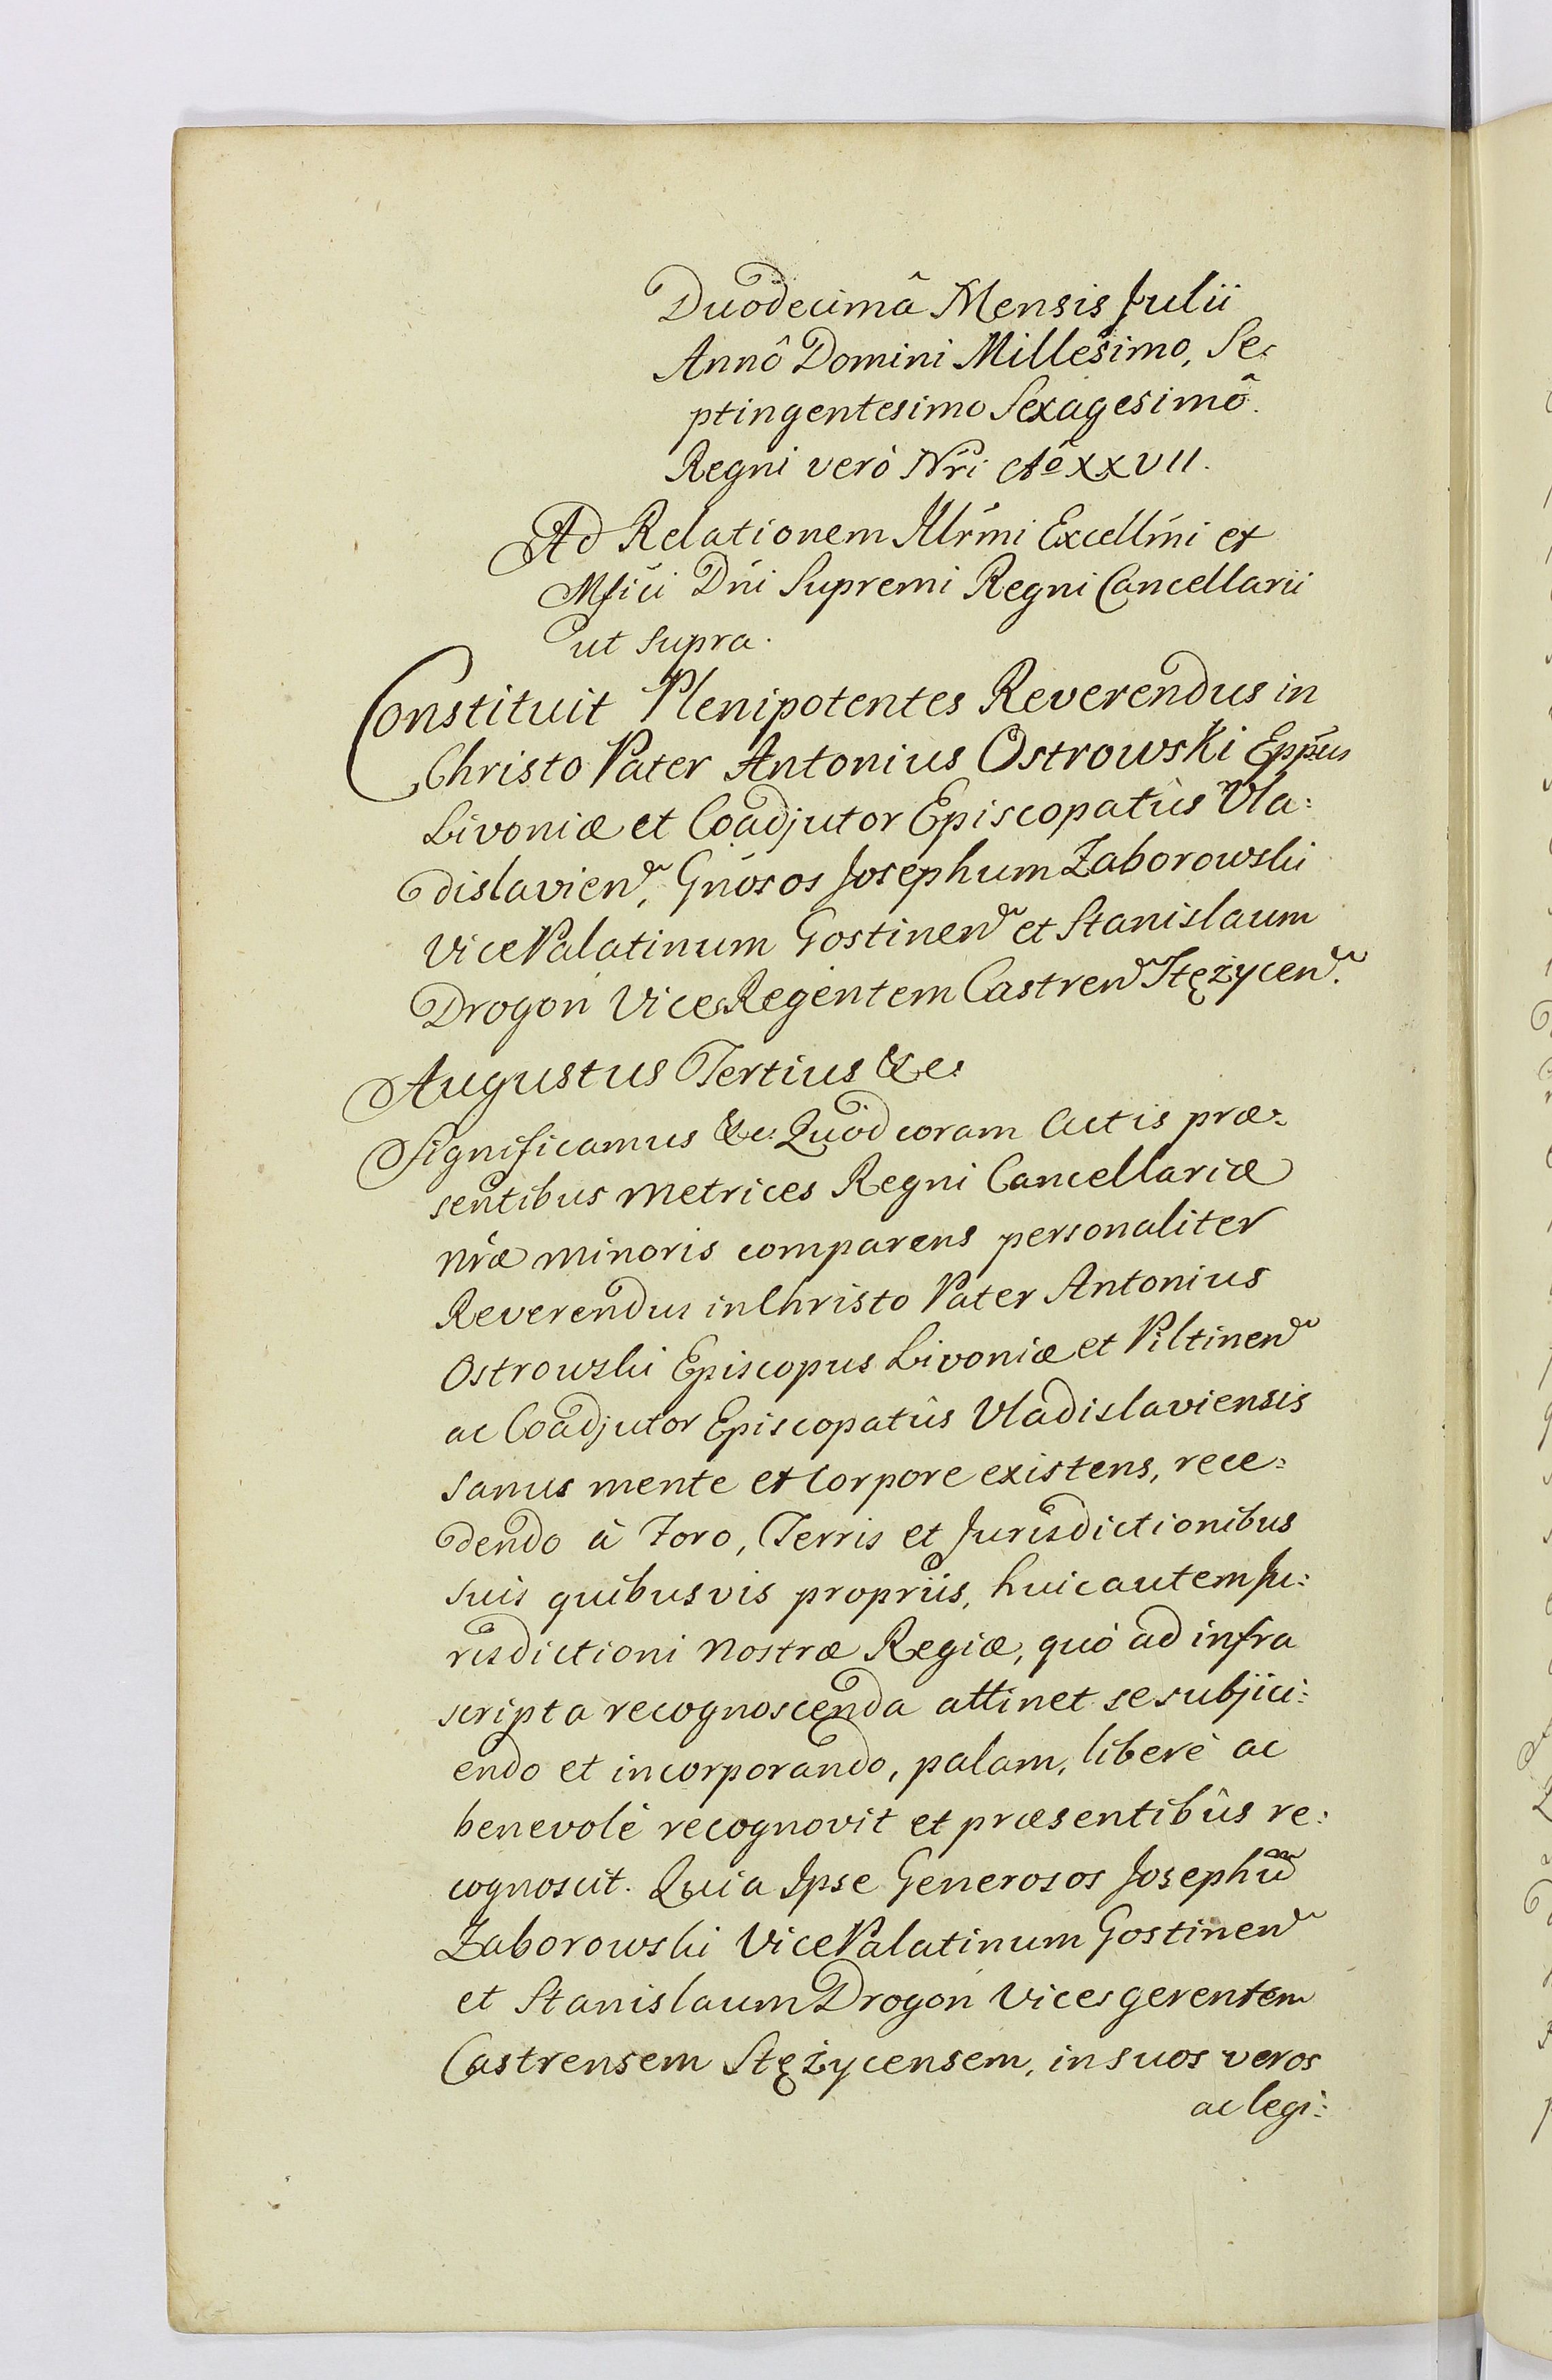 Duodecimâ Mensis Julii
Annô Domini Millesimo, Se:
ptingentesimo Sexagesimô.
Regni verò Nri Aô XXVII.
Ad Relationem Illrmi Excellmi et
Mfici Dni Supremi Regni Cancellarii
ut supra.
Constituit Plenipotentes Reverendus in
Christo Pater Antonius Ostrowski Eppus
Livoniæ et Coadjutor Episcopatûs Vla:
dislavien, Gnosos Josephum Zaborowski
Vice Palatinum Gostinen et Stanislaum
Drogoń Vices Regentem Castren Stężycen.
Augustus Tertius &c:
Significamus &c: Quod coram Actis præ:
sentibus Metrices Regni Cancellariæ
nræ minoris comparens personaliter
Reverendus in Christo Pater Antonius
Ostrowski Episcopus Livoniæ et Piltinen
ac Coadjutor Episcopatûs Vladislaviensis
sanus mente et Corpore existens, rece:
dendo à Foro, Terris et Jurisdictionibus
suis quibusvis propriis, huic autem Ju:
risdictioni Nostræ Regiæ, quò ad infra
scripta recognoscenda attinet se subjici:
endo et incorporando, palam, liberè ac
benevolè recognovit et præsentibûs re:
cognoscit. Quia Ipse Generosos Josephum
Zaborowski Vice Palatinum Gostinen
et Stanislaum Drogoń Vices gerentem
Castrensem Stężycensem, in suos veros
ac legi: